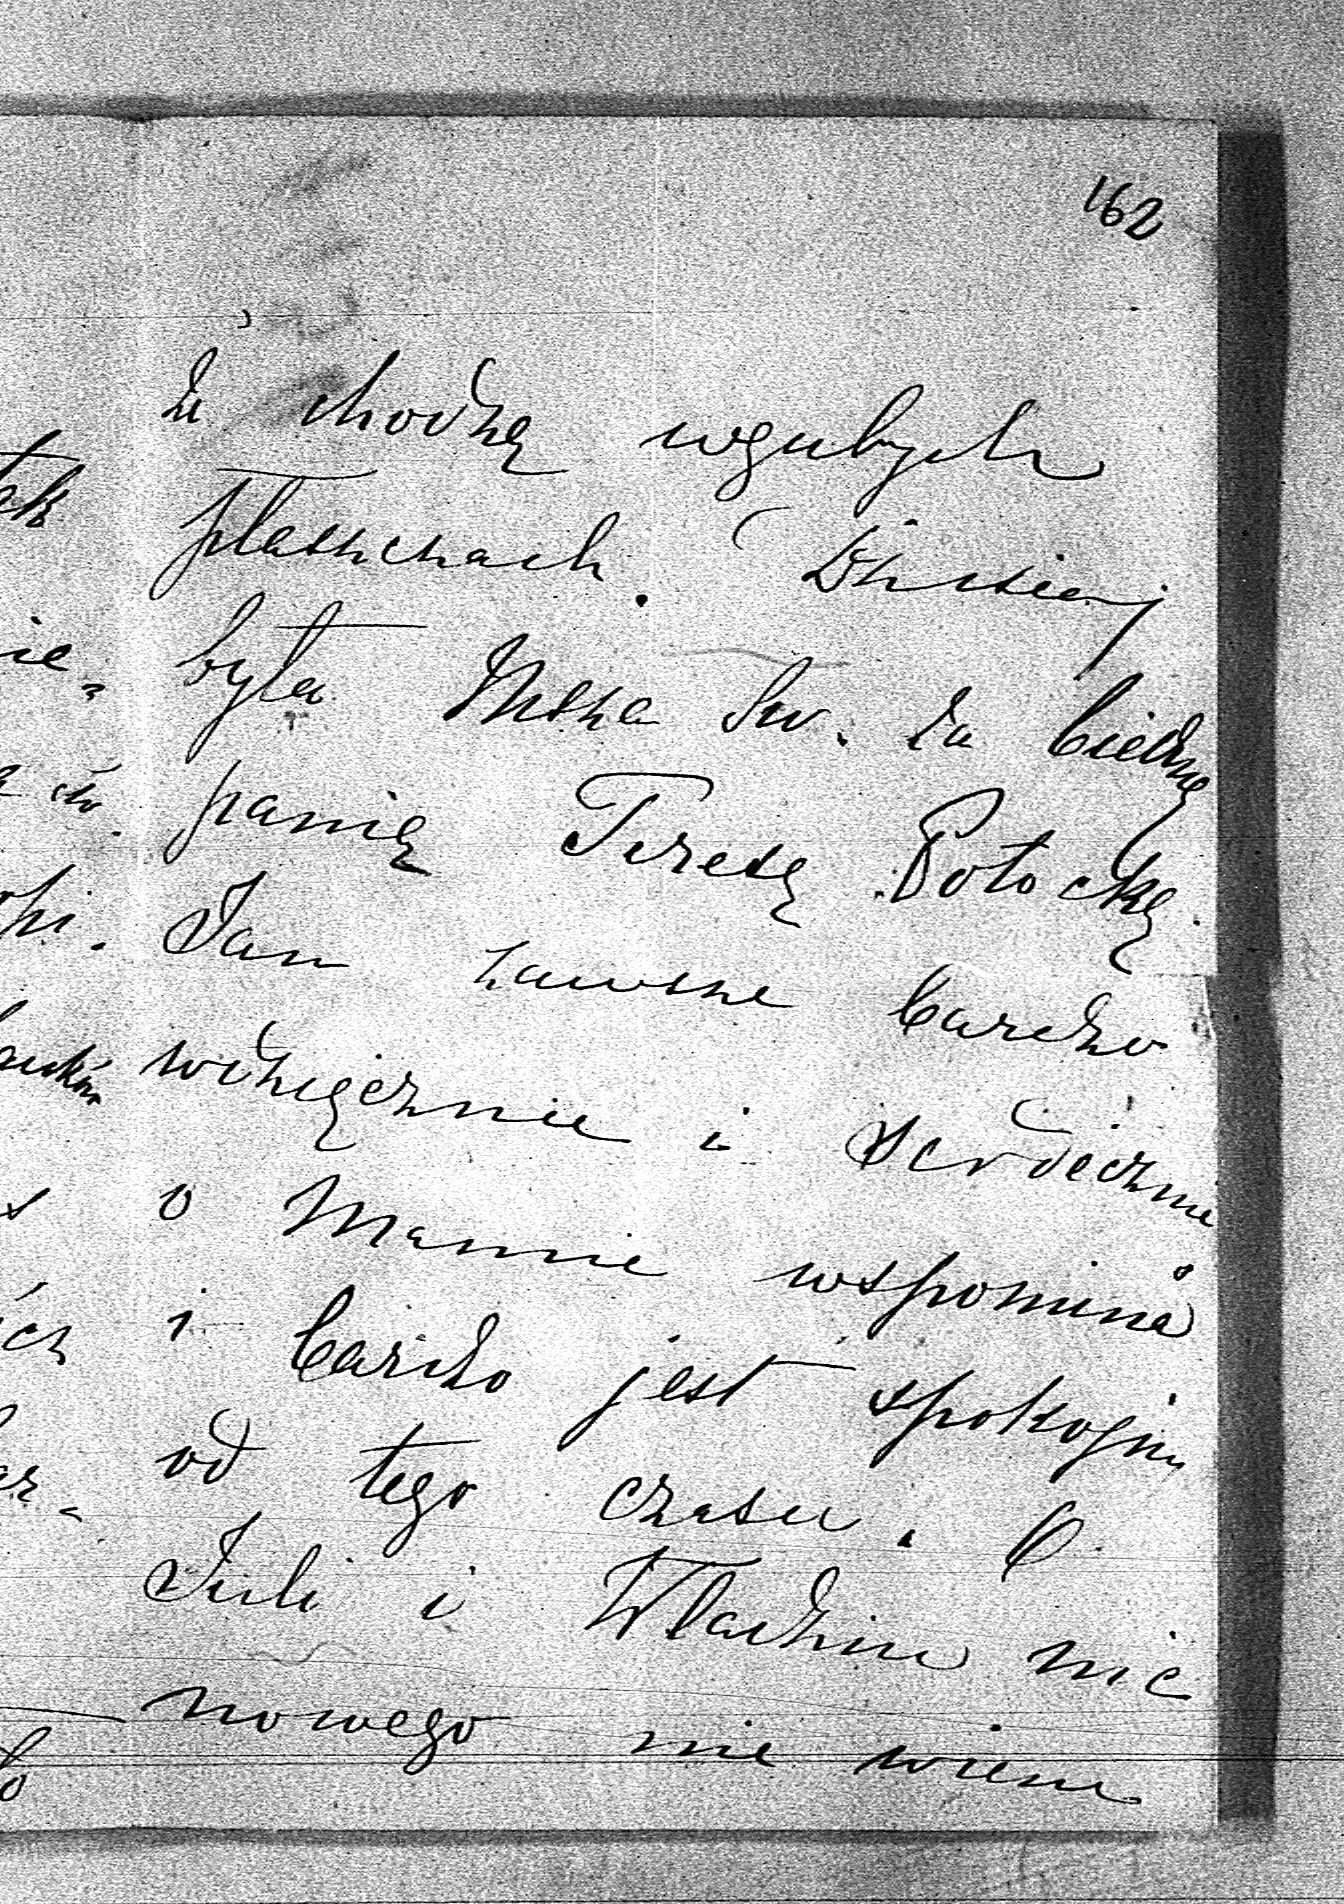 162
że chodzę w grubych
płaszczach. Dzisiaj
była Msza Św. za biedną
panią Teresę Potocką.
Jan zawsze bardzo
wdzięcznie i serdecznie
o Mamie wspomina
i bardzo jest spokojny
od tego czasu. O
Juli i Władziu nic
nowego nie wiem